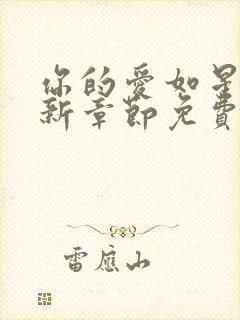 你的爱如星
新章節免費
雷應山